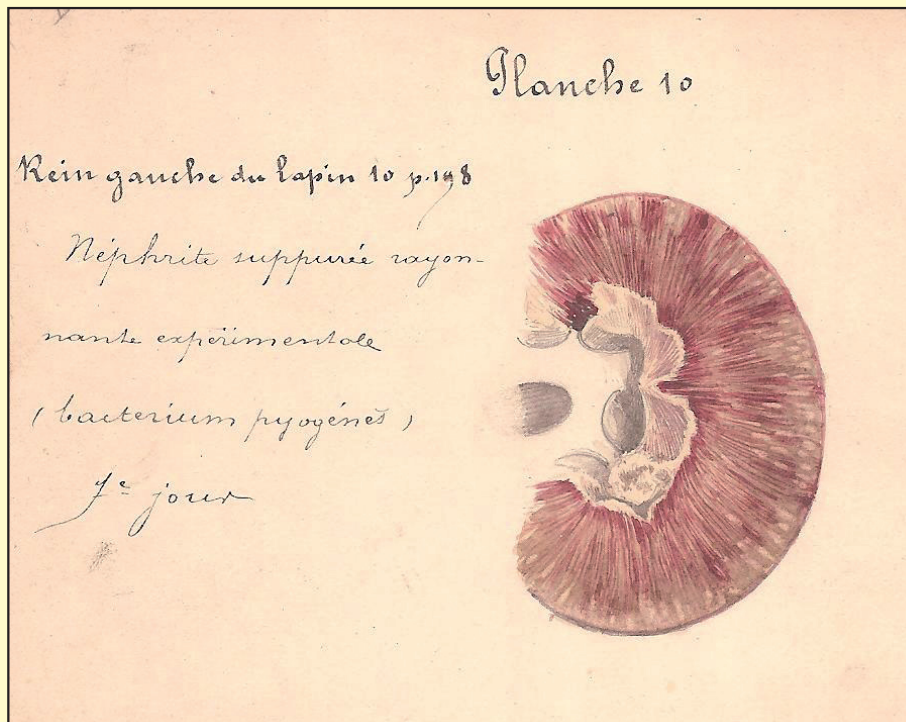 Planche 10
Rein gauche du lapin 10 p. 198
Néphrite suppurée rayon-
nante expérimentale
(bacterium pyogénès)
7e jour